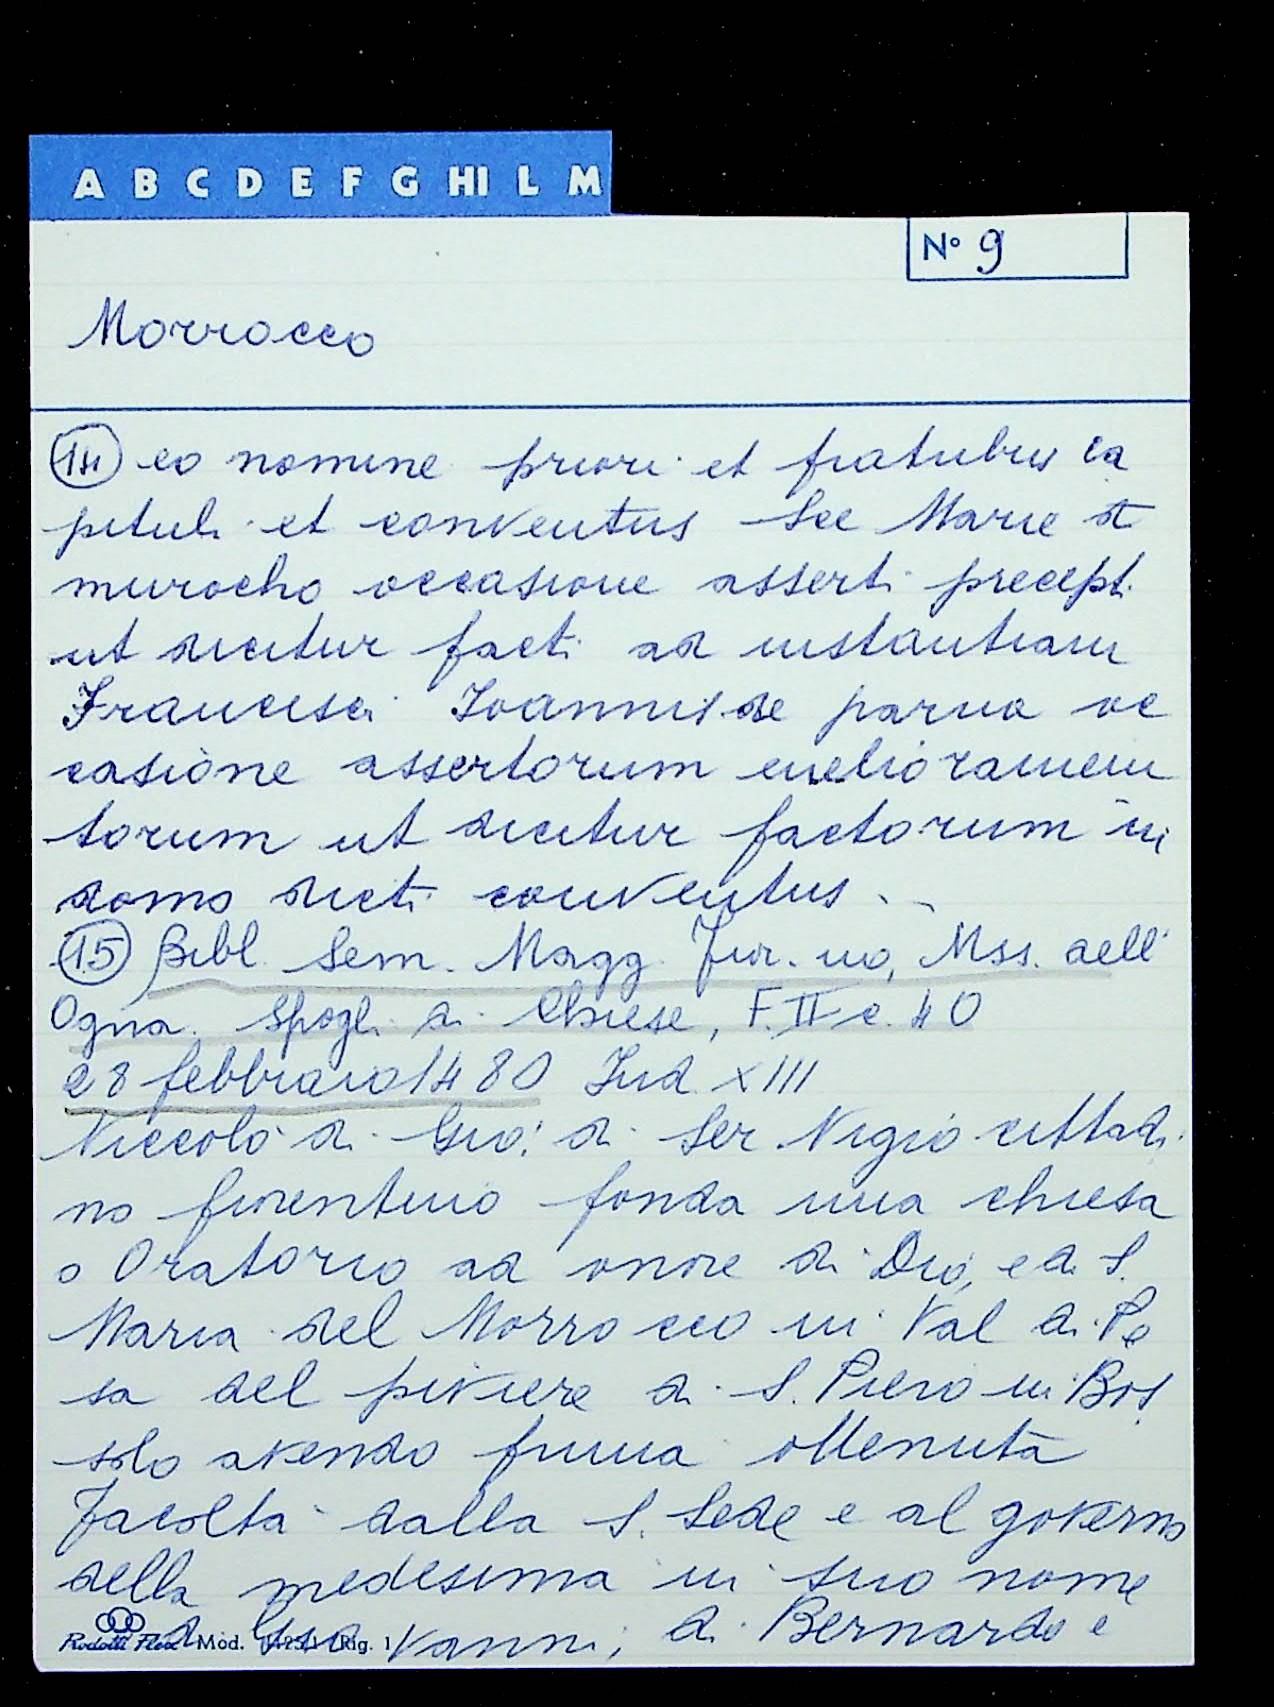 A B C D E F G HI L M
N° 9
Morrocco
(14) eo nomine priori et fratribus ca
pituli et conventus Sce Marie d
murocho occasione asserti precepti
ut dicitur facti ad instantiam
Francisci Ioannis de parua oc
casione assertorum melioramen
torum ut dicitur factorum in
domo dicti conventus..
(15) Bibl. Sem. Magg. Fior. no, Mss. dell'
Ogna. Spogli di Chiese, F. II c. 40
28 febbraio 1480 Ind. XIII
Niccolò di Gio: di Ser Nigio cittadi
no fiorentino fonda una chiesa
o Oratorio ad onore di Dio, e di S.
Maria del Morrocco in Val di Pe
sa del piviere di S. Piero in Bos
solo avendo prima ottenuta
facoltà dalla S. Sede e al governo
della medesima in suo nome
di Giovanni, di Bernardo e
Rodolfi Flex Mod. Rig. 1